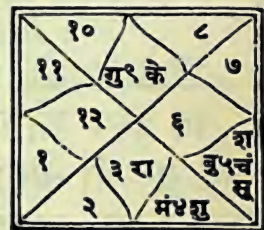 १० ८
११ गु९ के ७
१२ ६
श
१ ३ रा बु५चं
सू
२ मं४शु